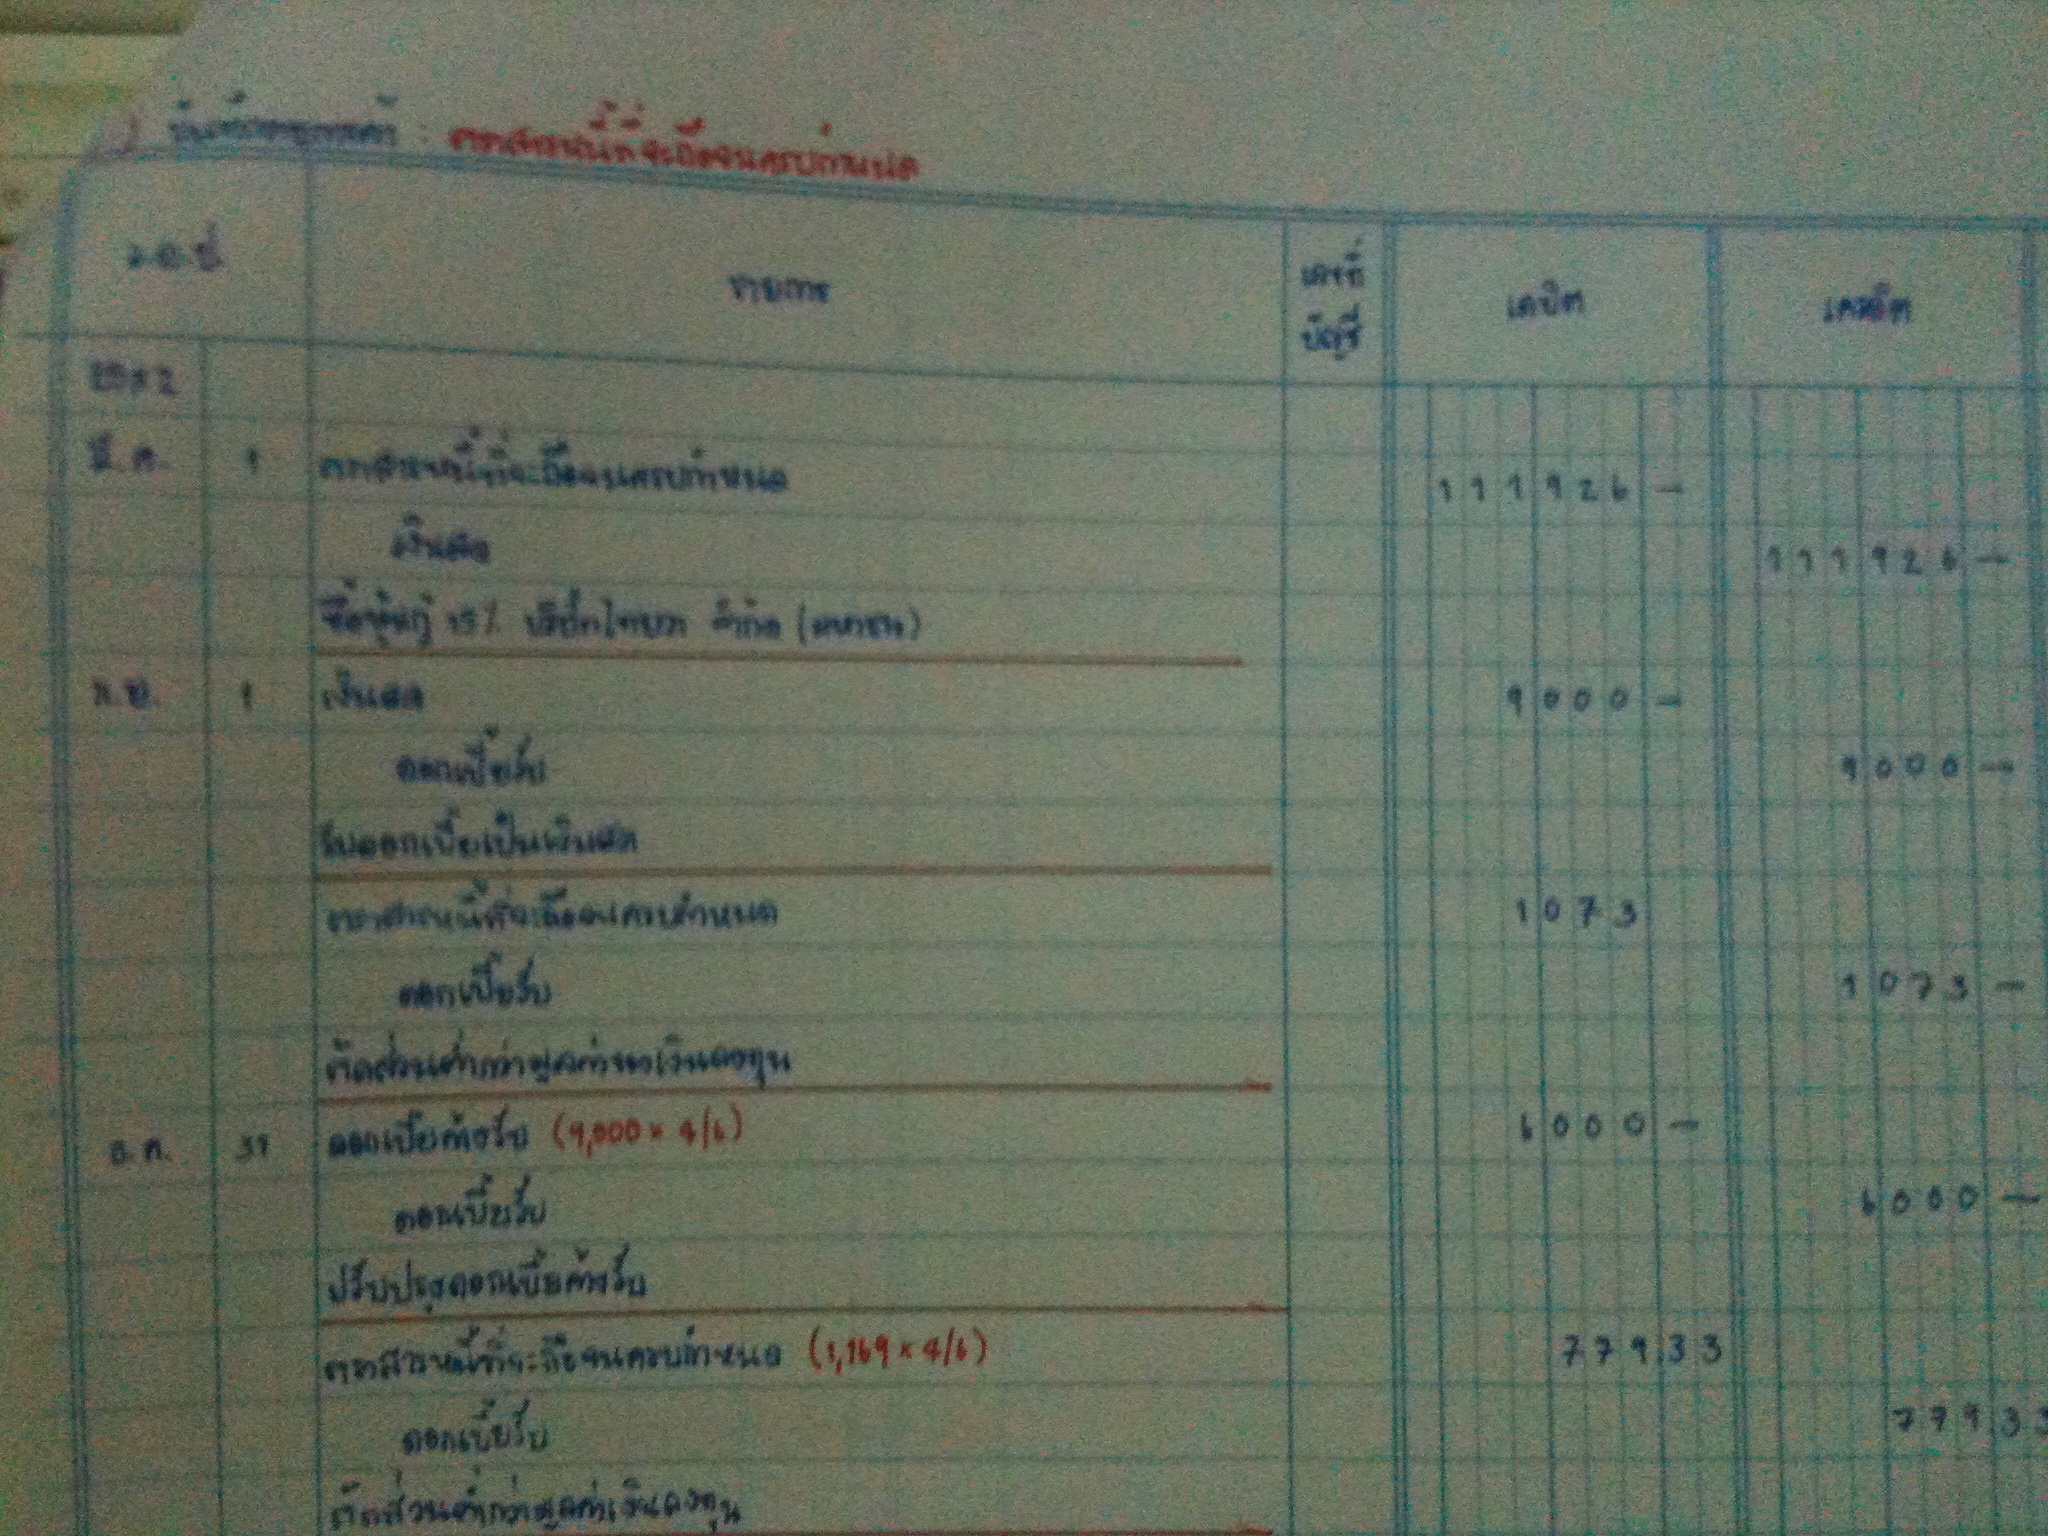 : ตราสารหนี้ที่จะถือจนครบกำหนด
ว.ด.ป. รายการ เลขที่บัญชี เดบิต เครดิต
25x2
มี.ค. 1 ตราสารหนี้ที่จะถือจนครบกำหนด 111926 –
เงินสด 111926 –
ซื้อหุ้นกู้ 15% บริษัทไทยวา จำกัด (มหาชน)
ก.ย. 1 เงินสด 9000 –
ดอกเบี้ยรับ 9000 –
รับดอกเบี้ยเป็นเงินสด
ตราสารหนี้ที่จะถือจนครบกำหนด 1073
ดอกเบี้ยรับ 1073 –
ตัดส่วนต่ำกว่ามูลค่าของเงินลงทุน
ธ.ค. 31 ดอกเบี้ยค้างรับ (9,000 × 4/6) 6000 –
ดอกเบี้ยรับ 6000 –
ปรับปรุงดอกเบี้ยค้างรับ
ตราสารหนี้ที่จะถือจนครบกำหนด (1,169 × 4/6) 779.33
ดอกเบี้ยรับ 779.33
ตัดส่วนต่ำกว่ามูลค่าเงินลงทุน